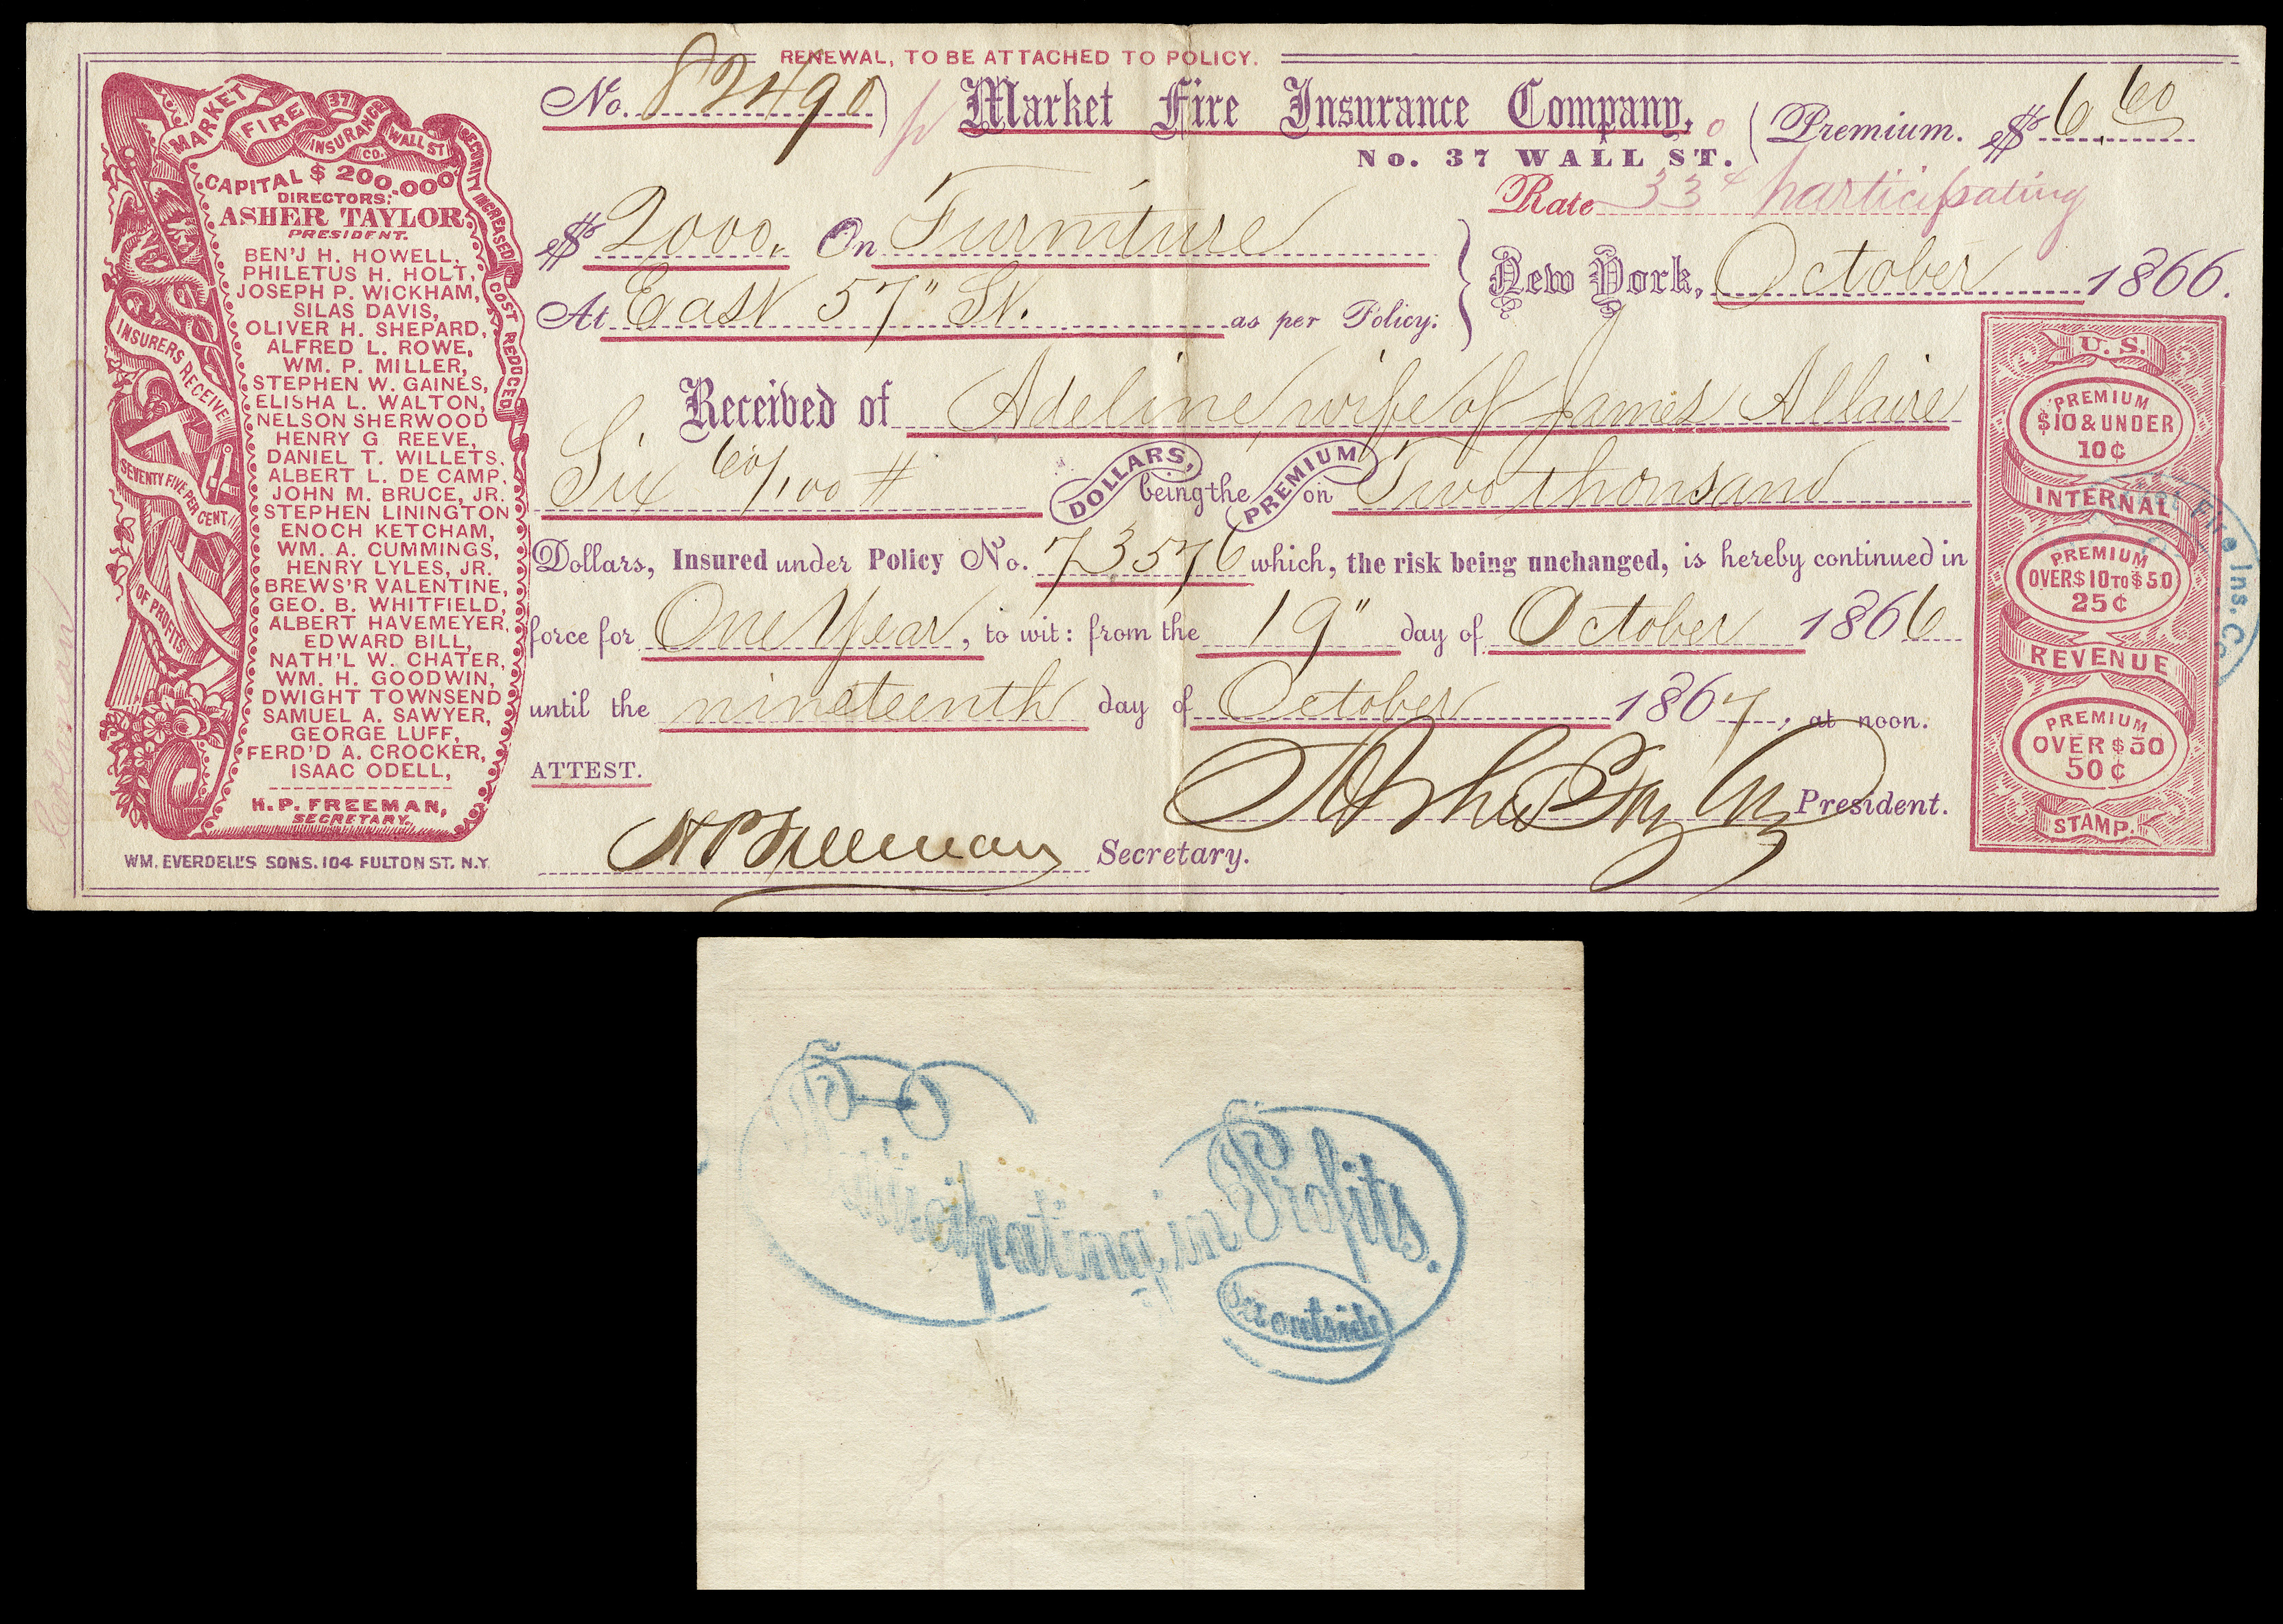 RENEWAL, TO BE ATTACHED TO POLICY.
No. 82490
Market Fire Insurance Company,
No. 37 WALL ST.
Premium. $ 6.60
Rate 33 participating
$ 2000. On Furniture
At East 57" St. as per Policy:
New York, October 1866.
Received of Adeline, wife of James Allaire
Six 60/100 # DOLLARS, being the PREMIUM on Two thousand
Dollars, Insured under Policy No. 73576 which, the risk being unchanged, is hereby continued in
force for One Year, to wit: from the 19" day of October 1866
until the nineteenth day of October 1867, at noon.
ATTEST.
H P Freeman Secretary.
President.
MARKET FIRE INSURANCE CO. 37 WALL ST
SECURITY INCREASED COST REDUCED
CAPITAL $ 200.000
DIRECTORS:
ASHER TAYLOR
PRESIDENT.
BEN'J H. HOWELL,
PHILETUS H. HOLT,
JOSEPH P. WICKHAM,
SILAS DAVIS,
OLIVER H. SHEPARD,
ALFRED L. ROWE,
WM. P. MILLER,
STEPHEN W. GAINES,
ELISHA L. WALTON,
NELSON SHERWOOD
HENRY G REEVE,
DANIEL T. WILLETS,
ALBERT L. DE CAMP,
JOHN M. BRUCE, JR.
STEPHEN LININGTON
ENOCH KETCHAM,
WM. A. CUMMINGS,
HENRY LYLES, JR.
BREWS'R VALENTINE,
GEO. B. WHITFIELD,
ALBERT HAVEMEYER,
EDWARD BILL,
NATH'L W. CHATER,
WM. H. GOODWIN,
DWIGHT TOWNSEND
SAMUEL A. SAWYER,
GEORGE LUFF,
FERD'D A. CROCKER,
ISAAC ODELL,
H. P. FREEMAN,
SECRETARY.
INSURERS RECEIVE
SEVENTY FIVE PER CENT
OF PROFITS
WM. EVERDELL'S SONS. 104 FULTON ST. N.Y.
U. S.
PREMIUM
$10 & UNDER
10¢
INTERNAL
PREMIUM
OVER $10 TO $50
25¢
REVENUE
PREMIUM
OVER $50
50¢
STAMP.
Ins. Co
Participating in Profits.
See outside